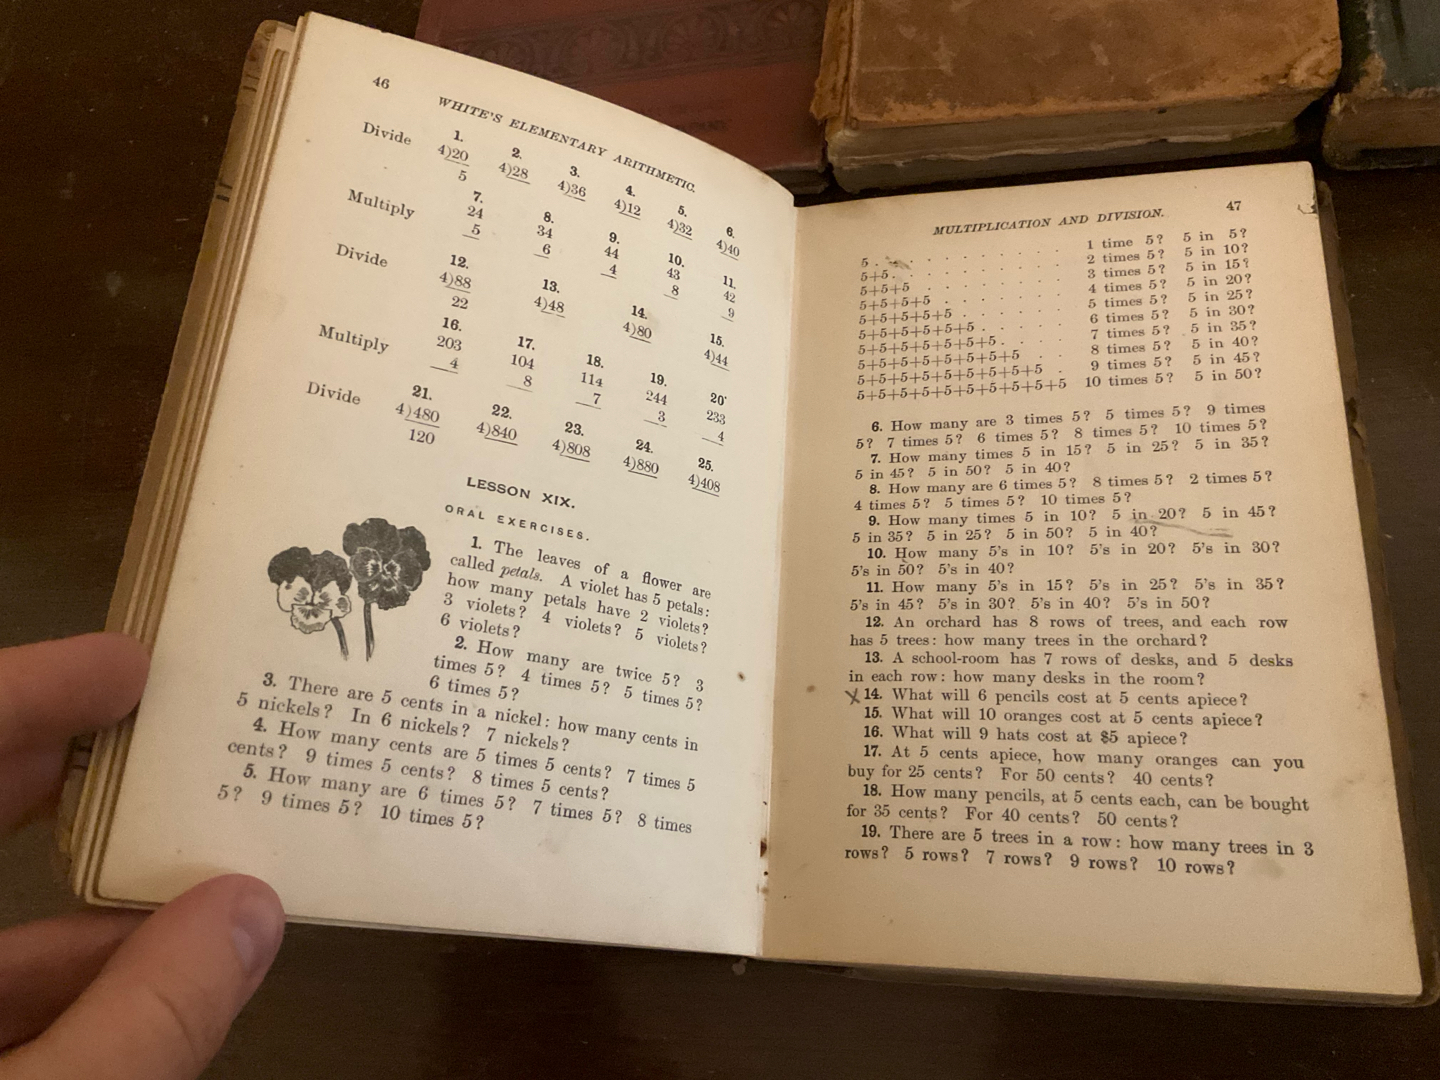 46
WHITE'S ELEMENTARY ARITHMETIC.
1. 2. 3. 4. 5. 6.
Divide 4)20 4)28 4)36 4)12 4)32 4)40
5
7. 8. 9. 10. 11.
Multiply 24 34 44 43 42
5 6 4 8 9
12. 13. 14. 15.
Divide 4)88 4)48 4)80 4)44
22
16. 17. 18. 19. 20.
Multiply 203 104 114 244 233
4 8 7 3 4
21. 22. 23. 24. 25.
Divide 4)480 4)840 4)808 4)880 4)408
120
LESSON XIX.
ORAL EXERCISES.
1. The leaves of a flower are
called petals. A violet has 5 petals:
how many petals have 2 violets?
3 violets? 4 violets? 5 violets?
6 violets?
2. How many are twice 5? 3
times 5? 4 times 5? 5 times 5?
6 times 5?
3. There are 5 cents in a nickel: how many cents in
5 nickels? In 6 nickels? 7 nickels?
4. How many cents are 5 times 5 cents? 7 times 5
cents? 9 times 5 cents? 8 times 5 cents?
5. How many are 6 times 5? 7 times 5? 8 times
5? 9 times 5? 10 times 5?
MULTIPLICATION AND DIVISION. 47
5 . . . . . . . . 1 time 5? 5 in 5?
5+5 . . . . . . . 2 times 5? 5 in 10?
5+5+5 . . . . . . 3 times 5? 5 in 15?
5+5+5+5 . . . . . . 4 times 5? 5 in 20?
5+5+5+5+5 . . . . . 5 times 5? 5 in 25?
5+5+5+5+5+5 . . . . 6 times 5? 5 in 30?
5+5+5+5+5+5+5 . . . 7 times 5? 5 in 35?
5+5+5+5+5+5+5+5 . . 8 times 5? 5 in 40?
5+5+5+5+5+5+5+5+5 . 9 times 5? 5 in 45?
5+5+5+5+5+5+5+5+5+5 10 times 5? 5 in 50?
6. How many are 3 times 5? 5 times 5? 9 times
5? 7 times 5? 6 times 5? 8 times 5? 10 times 5?
7. How many times 5 in 15? 5 in 25? 5 in 35?
5 in 45? 5 in 50? 5 in 40?
8. How many are 6 times 5? 8 times 5? 2 times 5?
4 times 5? 5 times 5? 10 times 5?
9. How many times 5 in 10? 5 in 20? 5 in 45?
5 in 35? 5 in 25? 5 in 50? 5 in 40?
10. How many 5's in 10? 5's in 20? 5's in 30?
5's in 50? 5's in 40?
11. How many 5's in 15? 5's in 25? 5's in 35?
5's in 45? 5's in 30? 5's in 40? 5's in 50?
12. An orchard has 8 rows of trees, and each row
has 5 trees: how many trees in the orchard?
13. A school-room has 7 rows of desks, and 5 desks
in each row: how many desks in the room?
X 14. What will 6 pencils cost at 5 cents apiece?
15. What will 10 oranges cost at 5 cents apiece?
16. What will 9 hats cost at $5 apiece?
17. At 5 cents apiece, how many oranges can you
buy for 25 cents? For 50 cents? 40 cents?
18. How many pencils, at 5 cents each, can be bought
for 35 cents? For 40 cents? 50 cents?
19. There are 5 trees in a row: how many trees in 3
rows? 5 rows? 7 rows? 9 rows? 10 rows?